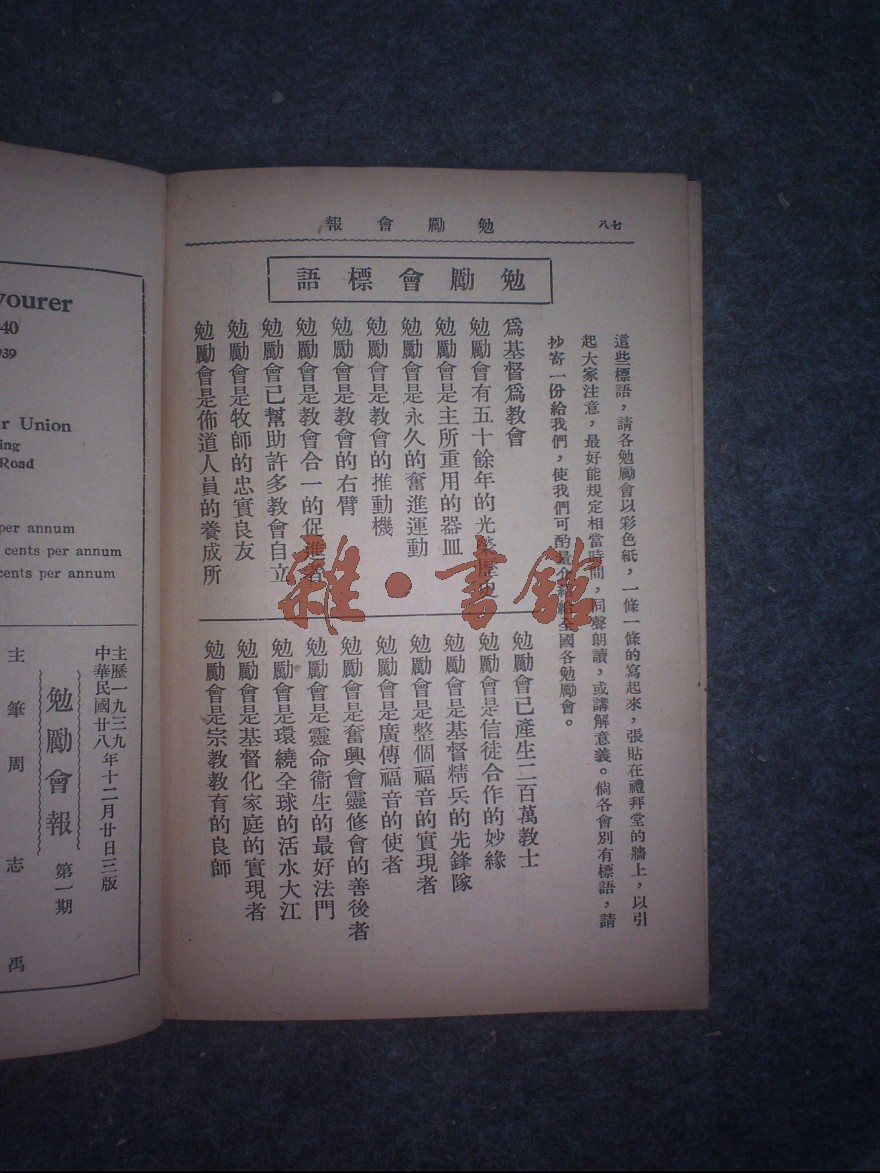 vourer
40
939
r Union
ing
Road
per annum
cents per annum
cents per annum
主歷一九三九年十二月廿日三版
中華民國廿八
勉勵會報 第一期
主筆周志禹
勉勵會報
七八
勉勵會標語
這些標語，請各勉勵會以彩色紙，一條一條的寫起來，張貼在禮拜堂的牆上，以引
起大家注意，最好能規定相當時間，同聲朗讀，或講解意義。倘各會別有標語，請
抄寄一份給我們，使我們可酌量介紹給全國各勉勵會。
爲基督爲教會
勉勵會有五十餘年的光榮歷史
勉勵會是主所重用的器皿
勉勵會是永久的奮進運動
勉勵會是教會的推動機
勉勵會是教會的右臂
勉勵會是教會合一的促進者
勉勵會已幫助許多教會自立
勉勵會是牧師的忠實良友
勉勵會是佈道人員的養成所
勉勵會已產生二百萬教士
勉勵會是信徒合作的妙緣
勉勵會是基督精兵的先鋒隊
勉勵會是整個福音的實現者
勉勵會是廣傳福音的使者
勉勵會是奮興會靈修會的善後者
勉勵會是靈命衞生的最好法門
勉勵會是環繞全球的活水大江
勉勵會是基督化家庭的實現者
勉勵會是宗教教育的良師
雜·書館